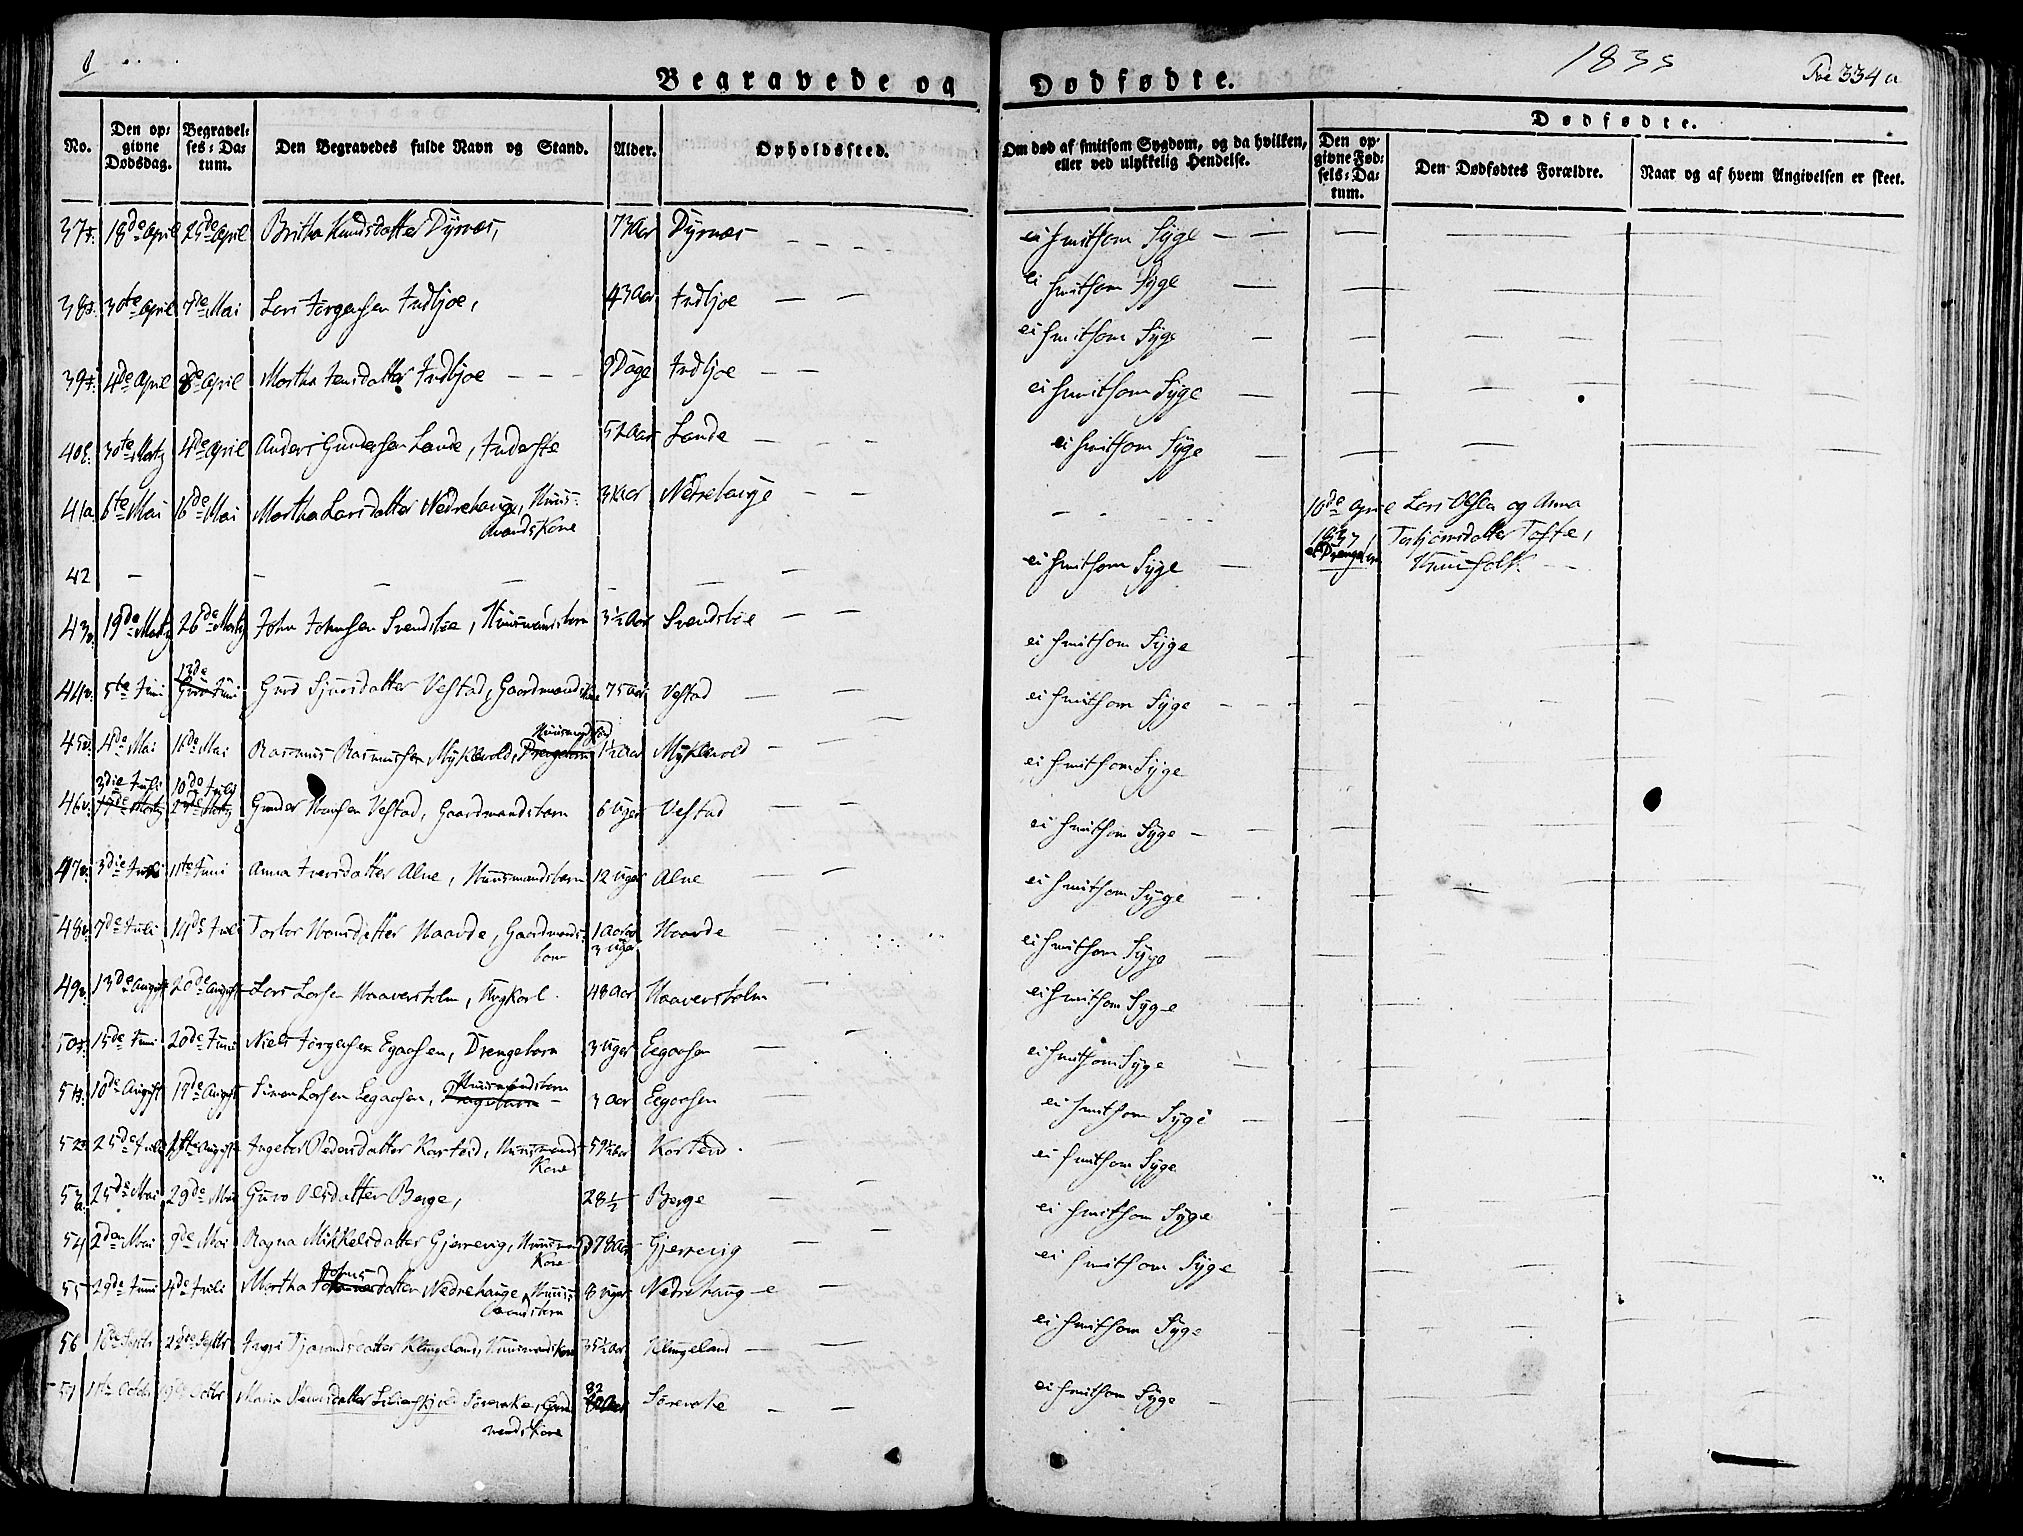 1835
334a
Begravede og Dødfødte.
No.
Den opgivne Dødsdag.
Begravelses-Datum.
Den Begravedes fulde Navn og Stand.
Alder.
Opholdssted.
Om død af smitsom Sygdom, og da hvilken, eller ved ulykkelig Hendelse.
Dødfødte.
Den opgivne Fødsels-Datum.
Den Dødfødtes Forældre.
Naar og af hvem Angivelsen er skeet.
37 18de April 25de April Britha Knudsdatter Dyrnæs, 73 Aar Dyrnæs – – – – ei smitsom Syge – –
38 30te April 7de Mai Lars Jørgensen Indbjoe, 43 Aar Indbjoe – – ei smitsom Syge –
39 4de April 8de April Martha Jensdatter Indbjoe – – – 9 Dage Indbjoe – – ei smitsom Syge
40 30te Martz 4de April Anders Gundersen Lande, Inderste 52 Aar Lande – – – ei smitsom Syge
41 6te Mai 16de Mai Martha Larsdatter Nedrehauge, Huusmandskone 31 Aar Nedrehauge – – ei smitsom Syge
42 – – – – – – – 10de April 1835 Lars Olsen og Anna Torbjørnsdatter Tofte, Huusfolk
43 19de Martz 26de Martz John Johnsen Svendsbøe, Huusmandsbarn 3½ Aar Svendsbøe – – ei smitsom Syge –
44 5te Juni 13de Juni Guro Sjursdatter Vestad, Gaardmandskone 75 Aar Vestad – – ei smitsom Syge
45 4de Mai 16de Mai Rasmus Rasmussen Myklevold, Huusmandsbarn 1½ Aar Myklevold – – ei smitsom Syge – –
46 3die Juli 10de Juli Gunder Hansen Vestad, Gaardmandsbarn 6 Uger Vestad – – ei smitsom Syge
47 3die Juni 11te Juni Anna Iversdatter Alne, Huusmandsbarn 12 Uger Alne – – ei smitsom Syge – –
48 7de Juli 14de Juli Torbor Hansdatter Haavde, Gaardmandsbarn 1 Aar og 3 Uger Haavde – ei smitsom Syge
49 13de August 20de August Lars Larsen Haaversholm, Ungkarl 48 Aar Haaversholm ei smitsom Syge –
50 15de Juni 20de Juni Niels Jørgensen Egaasen, Drengebarn 3 Uger Eegaasen – – ei smitsom Syge
51 10de August 17de August Simon Larsen Eegaasen, Huusmandsbarn 3 Aar Eegaasen – – ei smitsom Syge
52 25de Juli August Ingebor Pedersdatter Kartvid, Huusmandskone 59½ Aar – ei smitsom Syge –
53 25de Mai 29de Mai Guro Olsdatter Berge, 28½ Berge – – ei smitsom Syge
54 2den Mai 9de Mai Ragna Mikkelsdatter Gjerrevig, Huusmandskone 78 Aar Gjerrevig – – ei smitsom Syge
55 29de Juni 4de Juli Martha Johnsdatter Nedrehauge, Huusmandsbarn 8 Uger Nedrehauge – ei smitsom Syge
56 16de Septbr Septbr Tjerandsdatter Klingeland, Huusmandskone 35½ Aar Klingeland – – ei smitsom Syge –
57 11te Octobr Octbr Maria Sørevake, Gaardmandskone 82 Sørevake – – ei smitsom Syge –